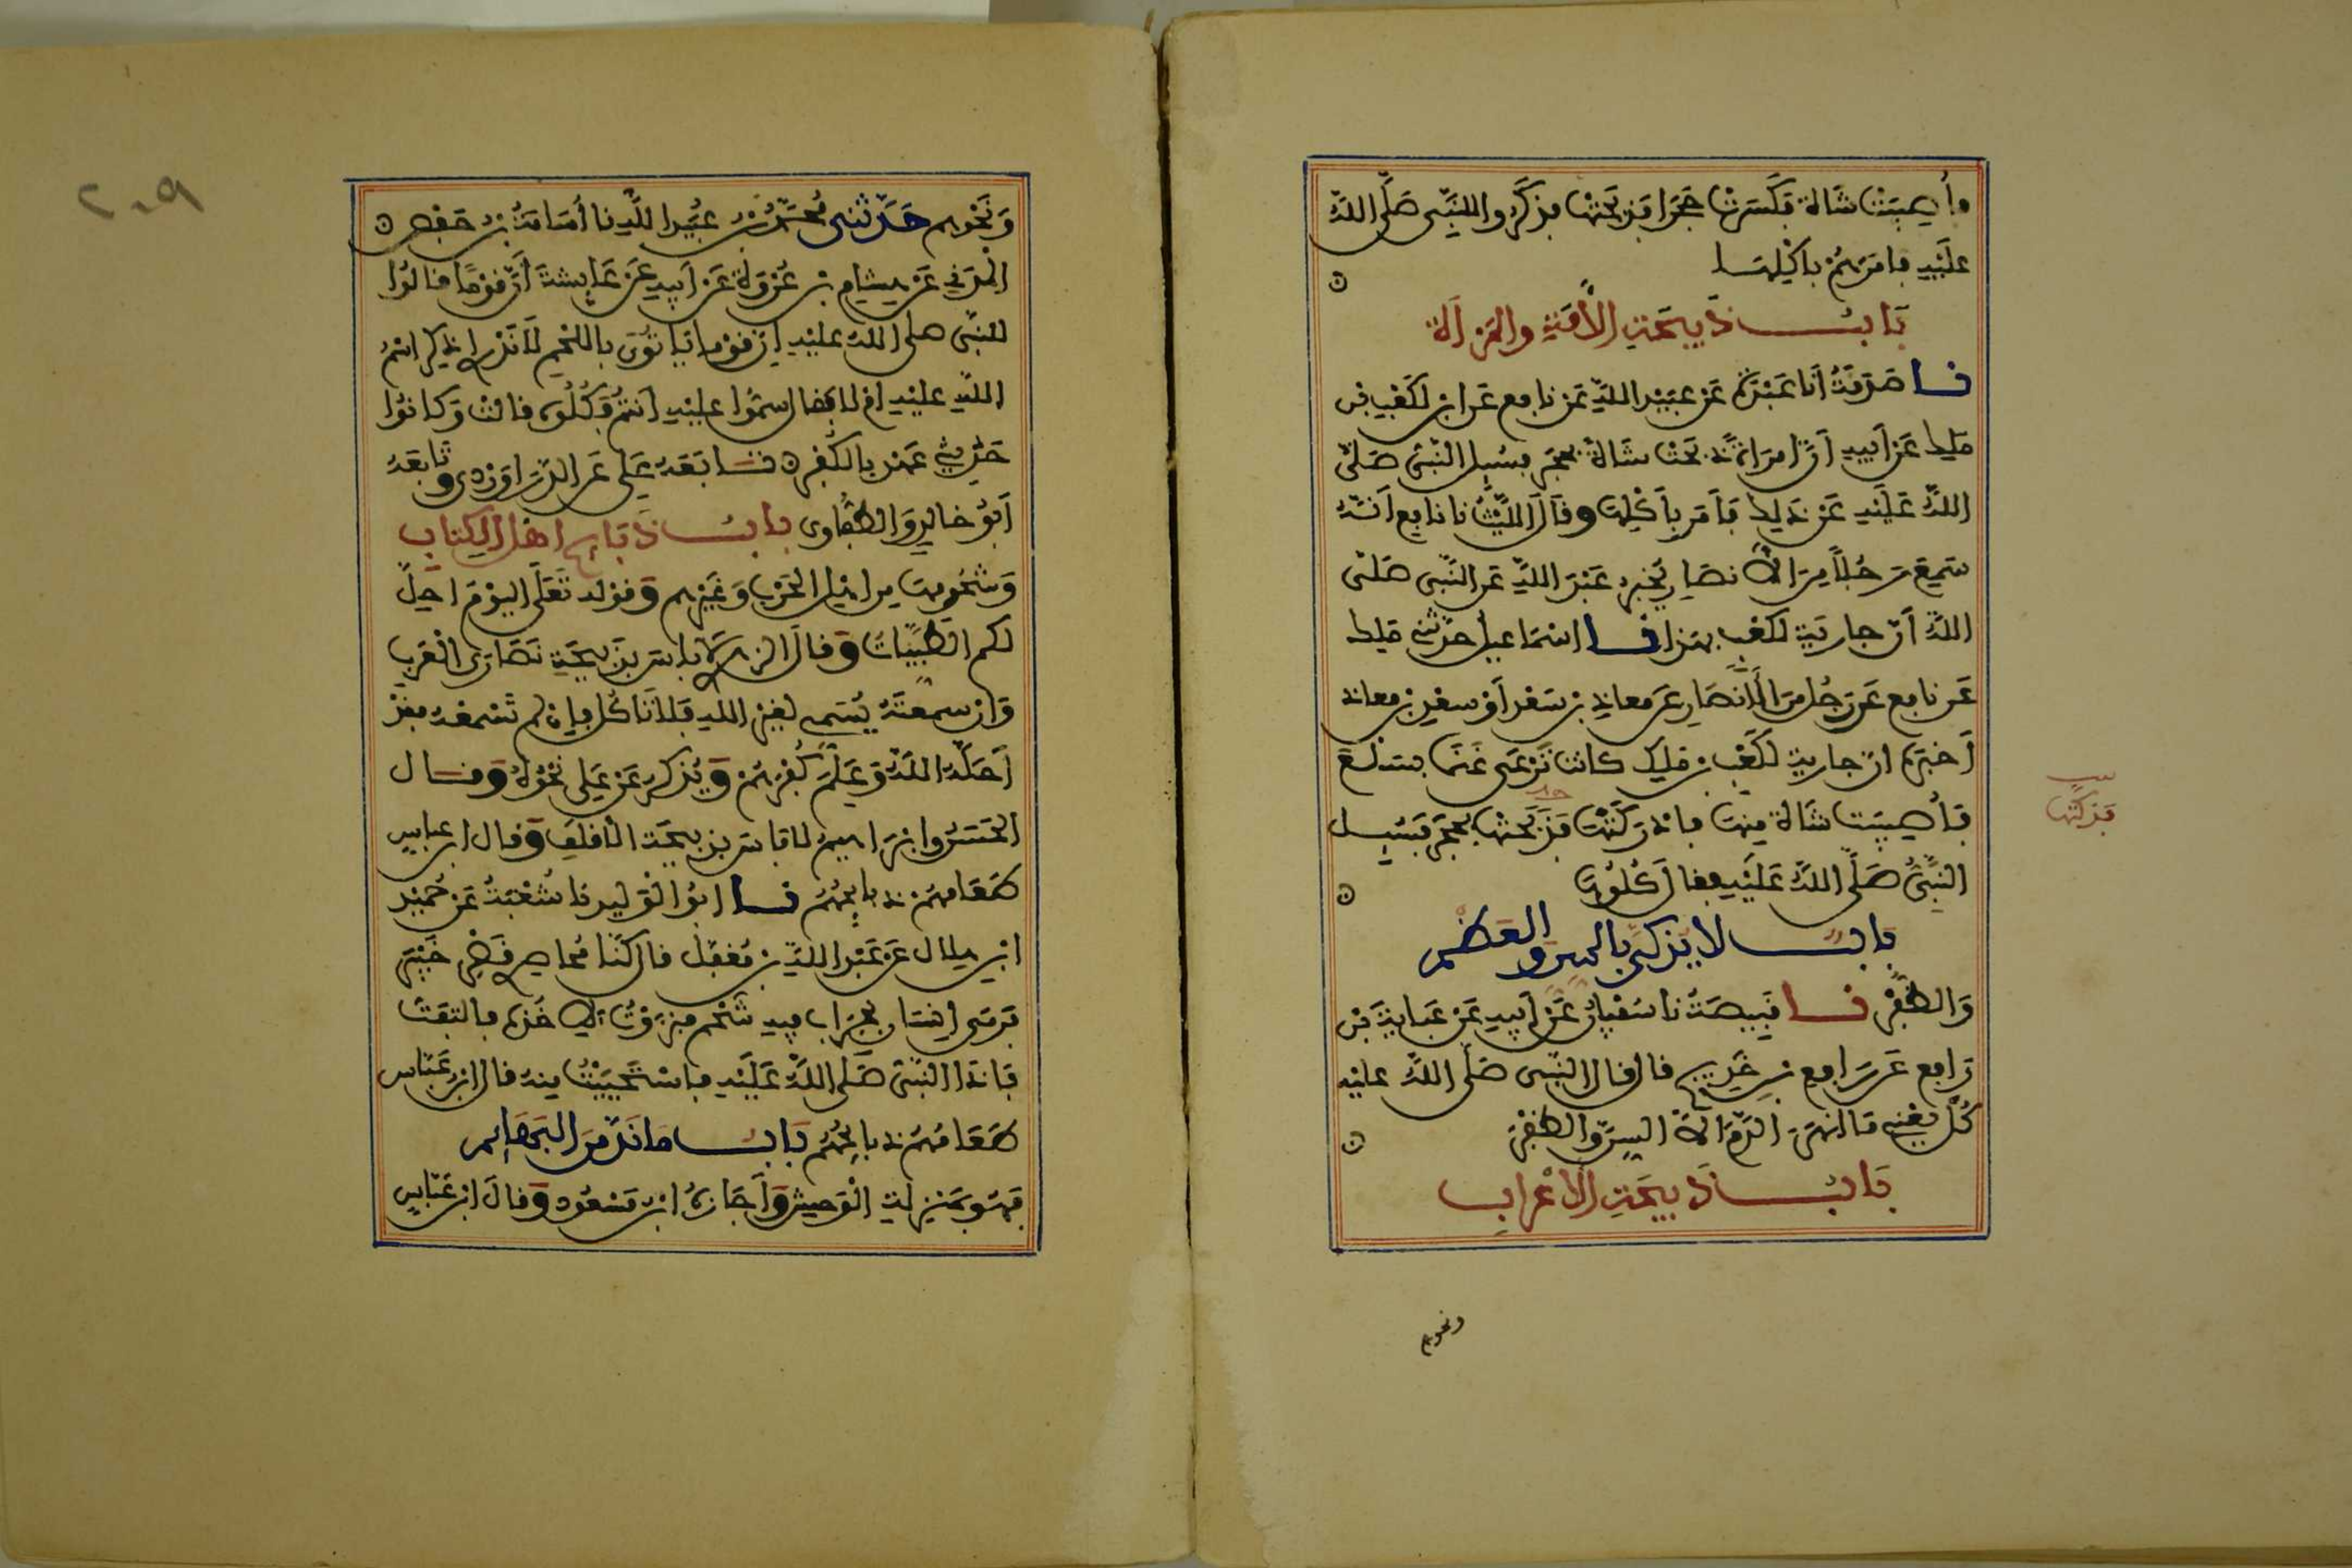 فأصيبت شاة فكسرت حجرا فذبحتها فذكروا للنبي صلى الله
عليه فأمرهم بأكلها
باب ذبيحة الأمة والمرأة
نا صدقة أنا عبدة عن عبيد الله عن نافع عن ابن لكعب بن
ملك عن أبيه أن امرأة ذبحت شاة بحجر فسيل النبي صلى
الله عليه عن ذلك فأمر بأكلها وقال الليث نا نافع أنه
سمع رجلا من الأنصار يخبر عبد الله عن النبي صلى
الله أن جارية لكعب بهذا نا اسماعيل حدثني ملك
عن نافع عن رجل من الأنصار عن معاذ بن سعد أو سعد بن معاذ
أخبره ان جارية لكعب بن ملك كانت ترعى غنما بسلع
فأصيبت شاة منها فأدركتها فذبحتها بحجر فسيل
فذكتها
النبي صلى الله عليه فقال كلوها
باب لا يذكى بالسن والعظم
والظفر نا قبيصة نا سفيان عن أبيه عن عباية بن
رافع عن رافع بن خديج قال قال النبي صلى الله عليه
كل يعني ما انهر الدم الا السن والظفر
باب ذبيحة الأعراب
ونحوهم
٢٠٩
ونحوهم حدثني محمد بن عبيد الله نا أسامة بن حفص
المدني عن هشام بن عروة عن أبيه عن عايشة أن قوما قالوا
للنبي صلى الله عليه إن قوما يأتون باللحم لا ندري اذكر اسم
الله عليه ام لا فقال سموا عليه انتم وكلوه قالت وكانوا
حديثي عهد بالكفر تابعه علي عن الدراوردي وتابعه
أبو خالد والطفاوي باب ذبايح اهل الكتاب
وشحومها من اهل الحرب وغيرهم وقوله تعلى اليوم احل
لكم الطيبات وقال الزهري لا باس بذبيحة نصارى العرب
وان سمعته يسمي لغير الله فلا تاكل وإن لم تسمعه فقد
أحله الله وعلم كفرهم ويذكر عن علي نحوه وقال
الحسن وابراهيم لا باس بذبيحة الاقلف وقال ابن عباس
طعامهم ذبايحهم نا ابو الوليد نا شعبة عن حميد
ابن هلال عن عبد الله بن مغفل قال كنا محاصري قصر خيبر
فرمى إنسان بجراب فيه شحم فنزوت لاخذه فالتفت
فإذا النبي صلى الله عليه فاستحييت منه قال ابن عباس
طعامهم ذبايحهم باب ما ند من البهايم
فهو بمنزلة الوحش وأجازه ابن مسعود وقال ابن عباس